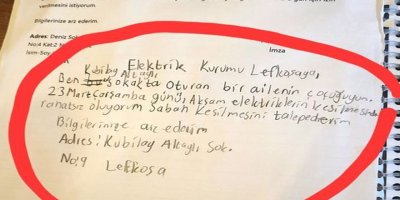 verilmesini istiyorum.
Bilgilerinize arz ederim.
Adres: Deniz Sok
No:4 Kat:2 N
İsim-Soy
için
İmza
Elektrik Kurumu Lefkoşaya,
Kubilay Altaylı
Ben sokakta oturan bir ailenin çocuğuyum.
23 Mart Çarşamba günü, Akşam elektriklerin kesilmesinden
rahatsız oluyorum Sabah Kesilmesini talepederim
Bilgilerinize arz ederim
Adres: Kubilay Altaylı Sok.
No: 9 Lefkoşa